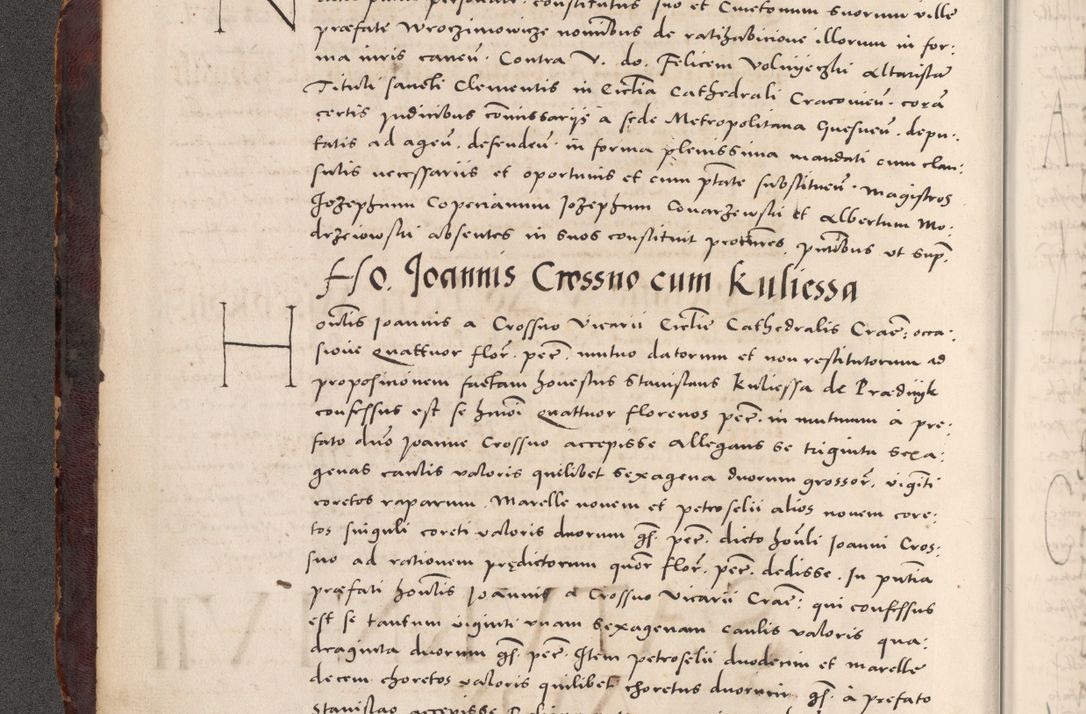 constitutus suo et Cmetonum suorum ville
præfate Wroczimowicze nominibus de ratihabicione illorum in for:
ma iuris caueñ. Contra V. do. Felicem altaristã
Tituli sancti Clementis in Ecclia Cathedrali Cracouieñ. corã
certis Judicibus cõmissarijs a sede Metropolitana Gnesneñ. depu:
tatis ad ageñ. defendeñ. in forma plenissima mandati cum clau:
sulis necessariis et oportunis et cum ptãte substitueñ. Magistros
Jozephum Coperianum Jozephum Conarzewski et Albertum Mo:
drzeiowski absentes in suos constituit procures. pñtibus ut supª.
Ho. Joannis Crossno cum Kuliessa
Honlis Joannis a Crossno Vicarii Ecclie Cathedralis Craĉ: occa:
sione Quattuor florˢ. pecˢ. mutuo datorum et non restitutorum ad
proposicionem factam honestus Stanislaus Kuliessa de Prædnyk
confessus est se hmõi Quattuor florenos pecˢ. in mutuum à pre:
fato dño Joanne Crossno accepisse Allegans se triginta sexa:
genas caulis valoris quilibet sexagena duorum grossorˢ. vigĩti
coretos raparum. Marelle nouem et petroselii alios nouem core:
tos singuli coreti valoris duorum gˢ. pecˢ. dicto honli Joanni Cros:
sno ad rationem prędictorum quorˢ florˢ. pecˢ. dedisse. In pñtia
præfati honlis Joannis a Crossno Vicarii Craĉ: qui confessus
est se tantum viginti vnam sexagenam caulis valoris qua:
draginta duorum gˢ. pecˢ. Item petroselii duodecim et marelle
decem choretos valoris quilibet choretus duorum gˢ. à prefato
Stanislao accepisse